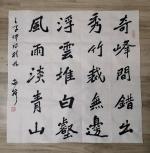 奇峰間錯出
秀竹無邊
浮雲堆白壑
風雨淡青山